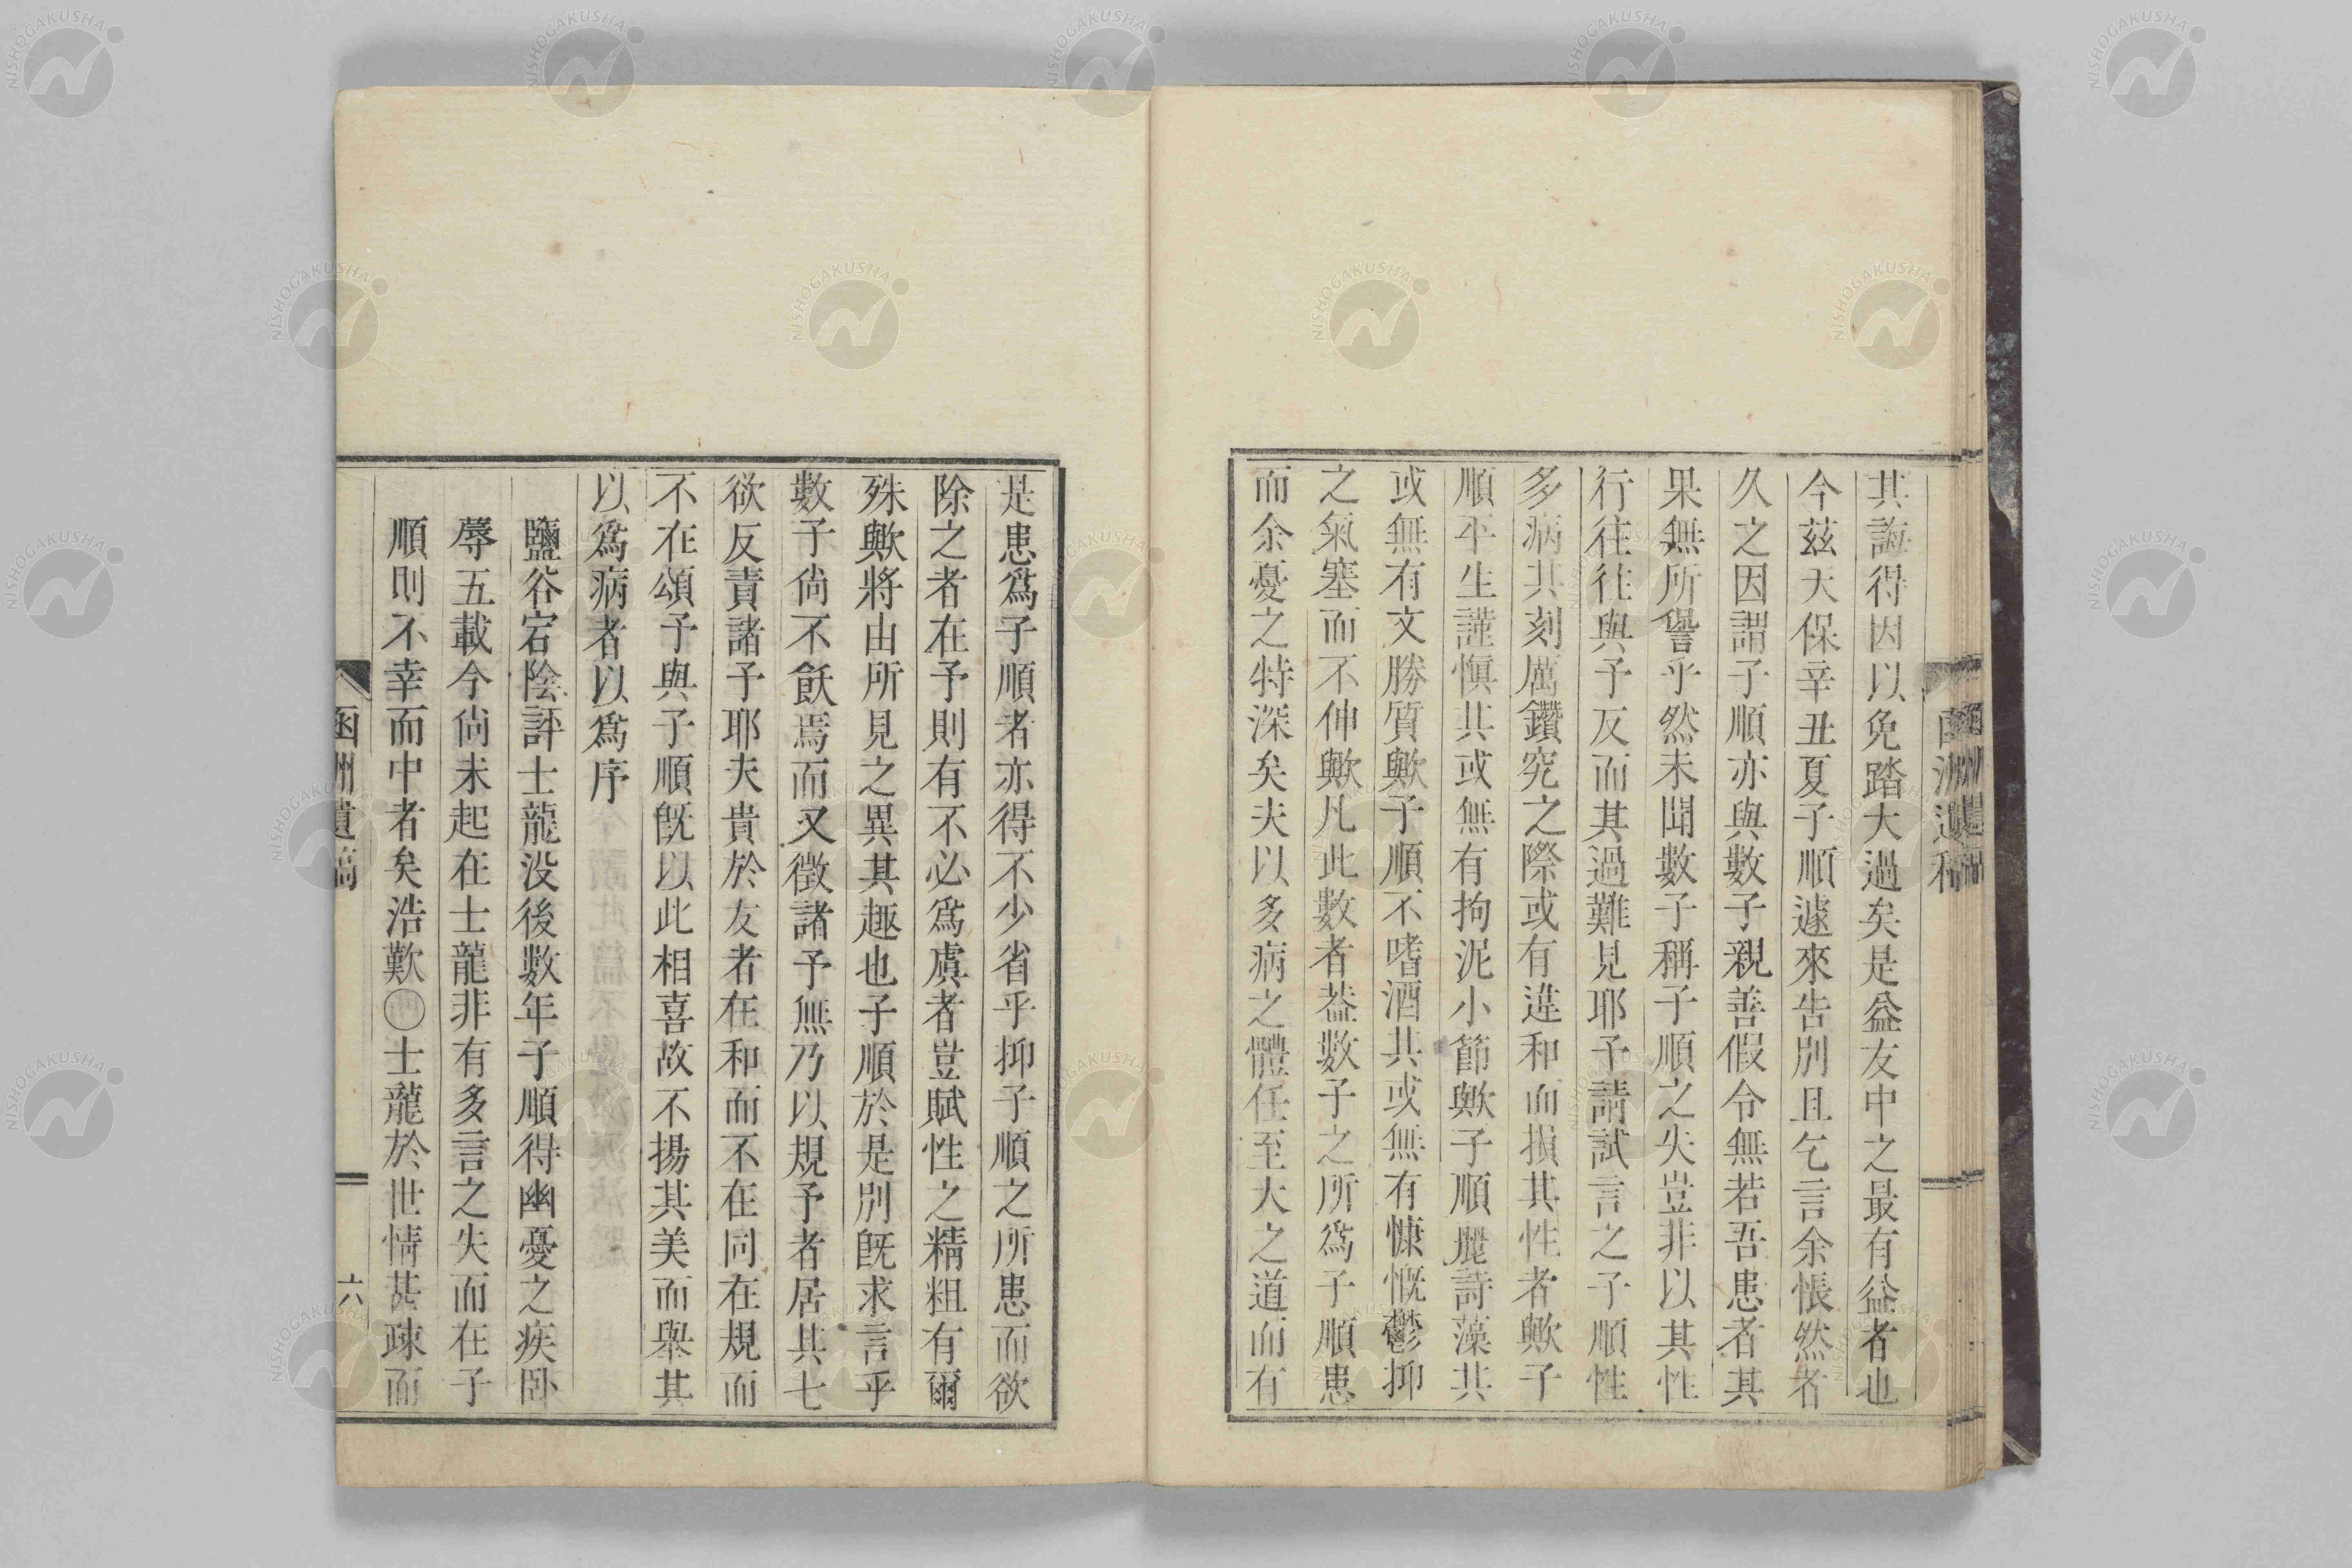 其誨得因以免踏大過矣是益友中之最有益者也
今茲天保辛丑夏子順遽來告別且乞言余悵然者
久之因謂子順亦與數子親善假令無若吾患者其
果無所譽乎然未聞數子稱子順之失豈非以其性
行往往與予反而其過難見耶予請試言之子順性
多病其刻厲鑽究之際或有違和而損其性者歟子
順平生謹愼其或無有拘泥小節歟子順麗詩藻其
或無有文勝質歟子順不嗜酒其或無有慷慨鬱抑
之氣塞而不伸歟凡此數者葢數子之所爲子順患
而余憂之特深矣夫以多病之體任至大之道而有
是患爲子順者亦得不少省乎抑子順之所患而欲
除之者在予則有不必爲虞者豈賦性之精粗有爾
殊歟將由所見之異其趣也子順於是別旣求言乎
數子尙不飫焉而又徵諸予無乃以規予者居其七
欲反責諸予耶夫貴於友者在和而不在同在規而
不在頌予與子順旣以此相喜故不揚其美而舉其
以爲病者以爲序
鹽谷宕陰評士龍没後數年子順得幽憂之疾卧
辱五載今尙未起在士龍非有多言之失而在子
順則不幸而中者矣浩歎〇士龍於世情甚疎而
函洲遺稿
六
NISHOGAKUSHA